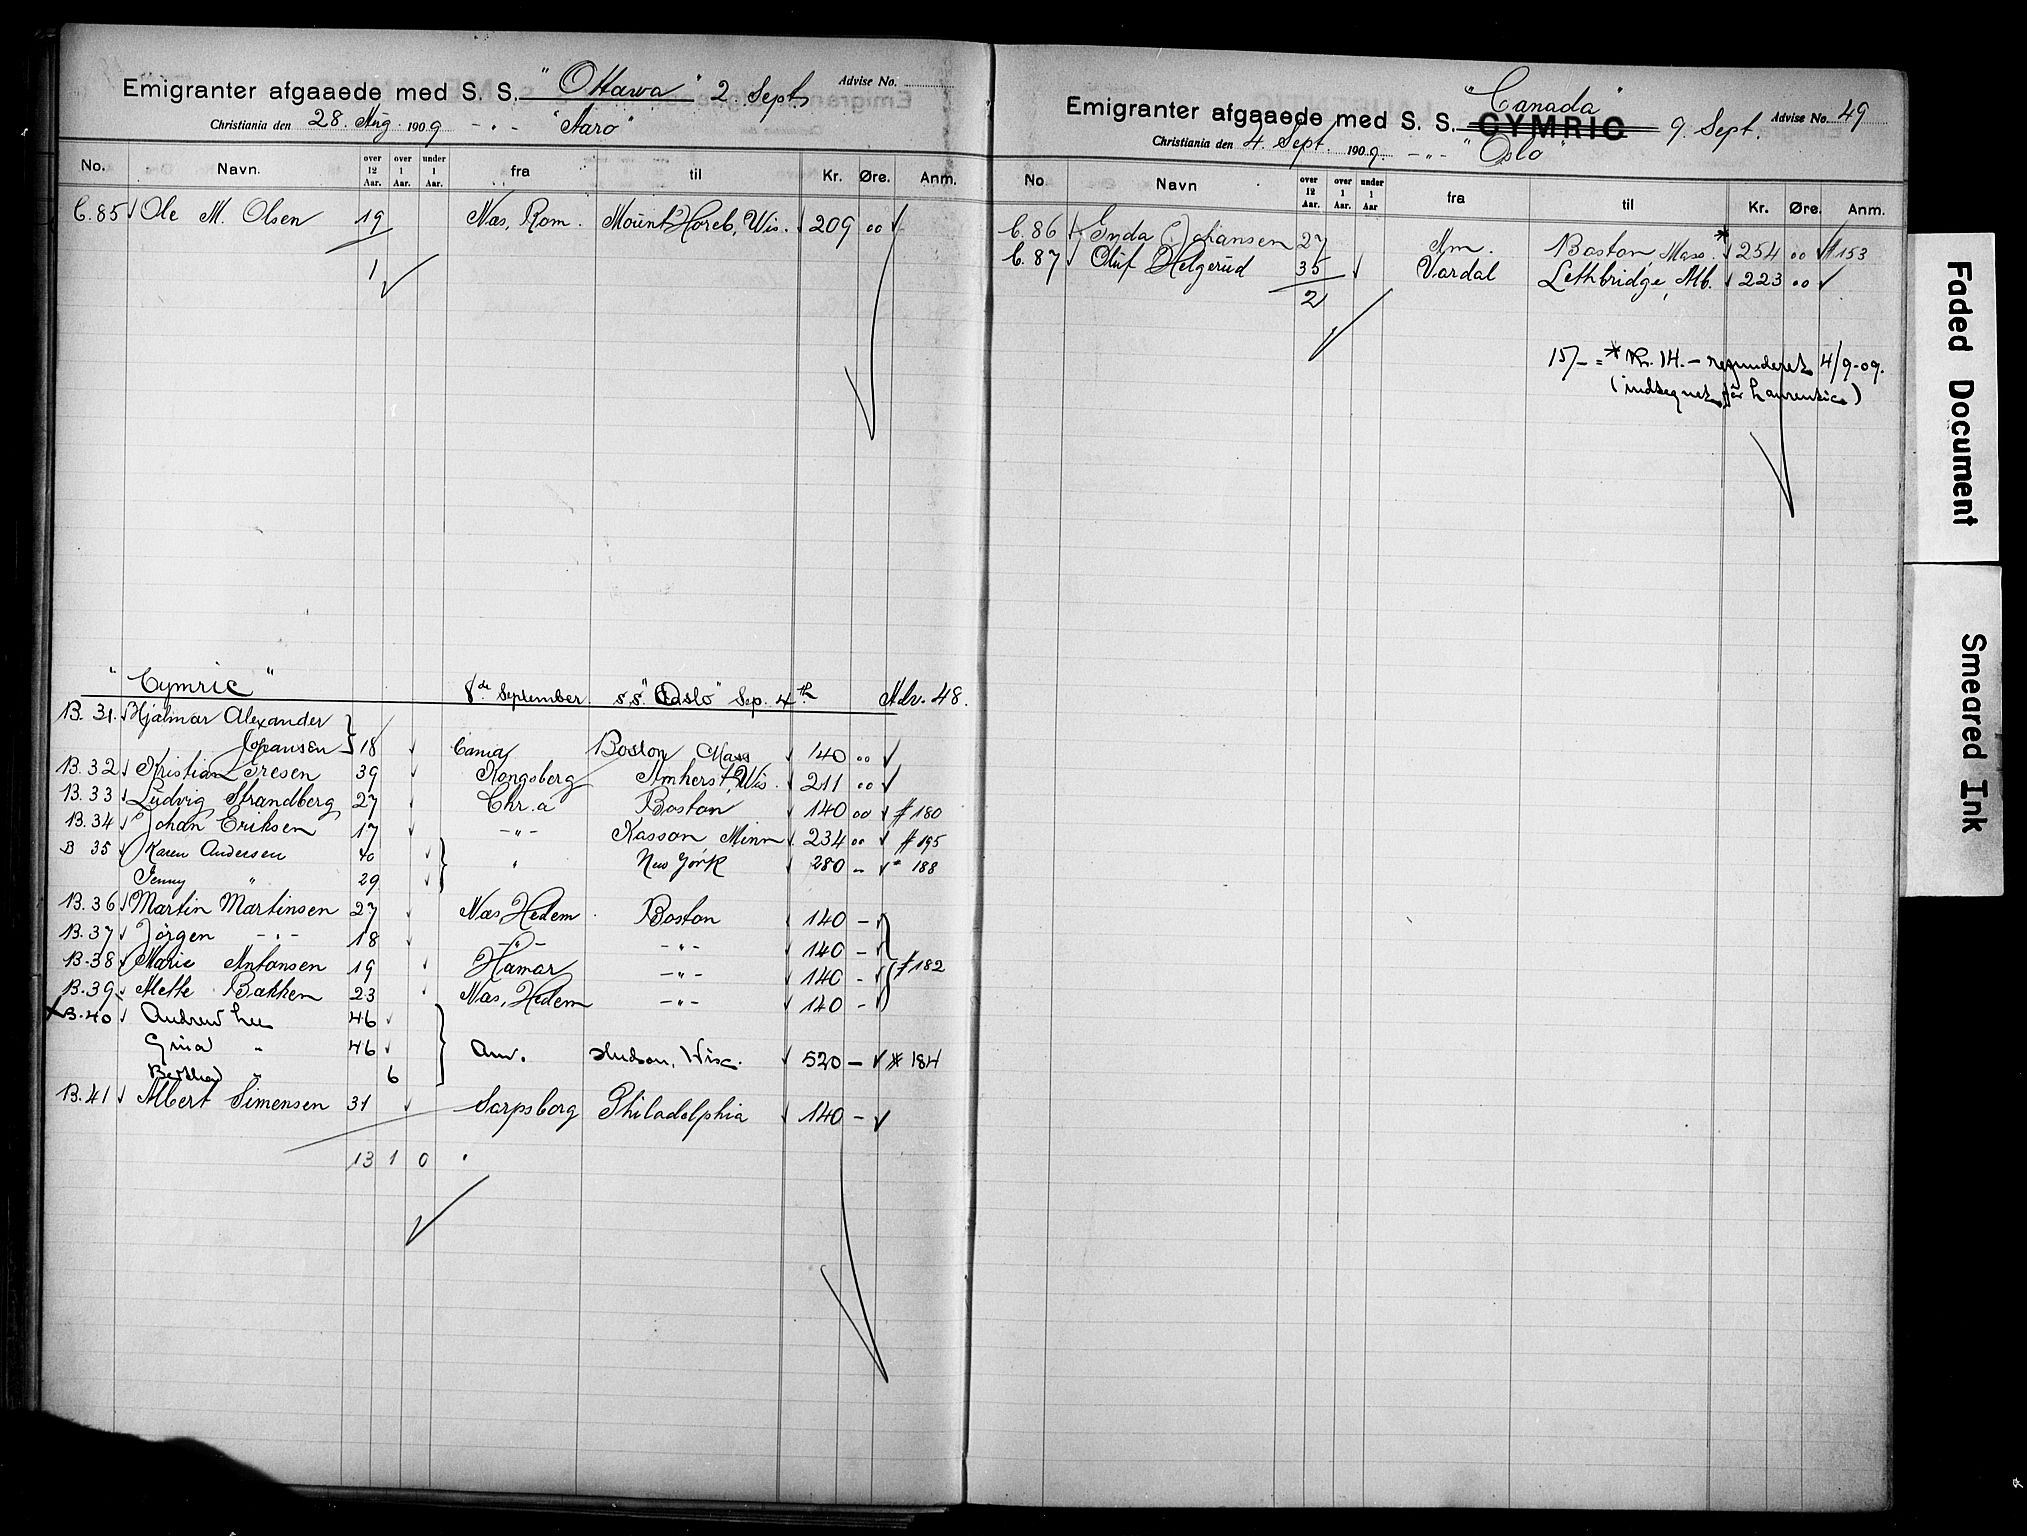 Emigranter afgaaede med S. S. "Ottawa" 2 Sept. Advise No.
Christiania den 28. Aug. 1909 - " - "Aaro"
No. Navn. over 12 Aar. over 1 Aar. under 1 Aar. fra til Kr. Øre. Anm.
C. 85 Ole M. Olsen 19 Næs, Rom. Mount Horeb, Wis. 209 00
1
"Cymric" 8de September s.s. "Oslo" Sep. 4th Adv. 48.
B. 31. Hjalmar Alexander
Johansen 18 Boston Mass 140 00
B. 32 Kristian 39 Kongsberg Amherst, Wis. 211 00
B. 33 Ludvig Strandberg 27 Chr.a Boston 140 00 # 180
B. 34 Johan Eriksen 17 - " - Kasson Minn. 234 00 # 195
B 35 Karen Andersen 40 " New York 280 - # 188
Jenny " 29
B. 36 Martin Martinsen 27 Næs, Hedem. Boston 140 -
B. 37 Jörgen - " - 18 - " - - " - 140 -
B. 38 Marie Antonsen 19 Hamar - " - 140 - # 182
B. 39 Mette Bakken 23 Næs, Hedem - " - 140 -
x B. 40 Andrew Lee 46
Gina " 46 Am. Hudson, Wisc. 520 - # 184
Bertha " 6
B. 41 Albert Simensen 31 Sarpsborg Philadelphia 140 -
13 1 0
Emigranter afgaaede med S. S. CYMRIC "Canada" 9. Sept. Advise No. 49
Christiania den 4. Sept. 1909. - " - "Oslo"
No. Navn over 12 Aar. over 1 Aar. under 1 Aar fra til Kr. Øre. Anm.
C. 86 Johansen 27 Am. Boston, Mass. * 254 00 # 153
C. 87 Oluf Helgerud 35 Vardal Lethbridge, Alb. 223 00
2
15/- = * Kr. 14. - refunderet 4/9-09.
(indtegnet for Laurentic)
Faded Document
Smeared Ink